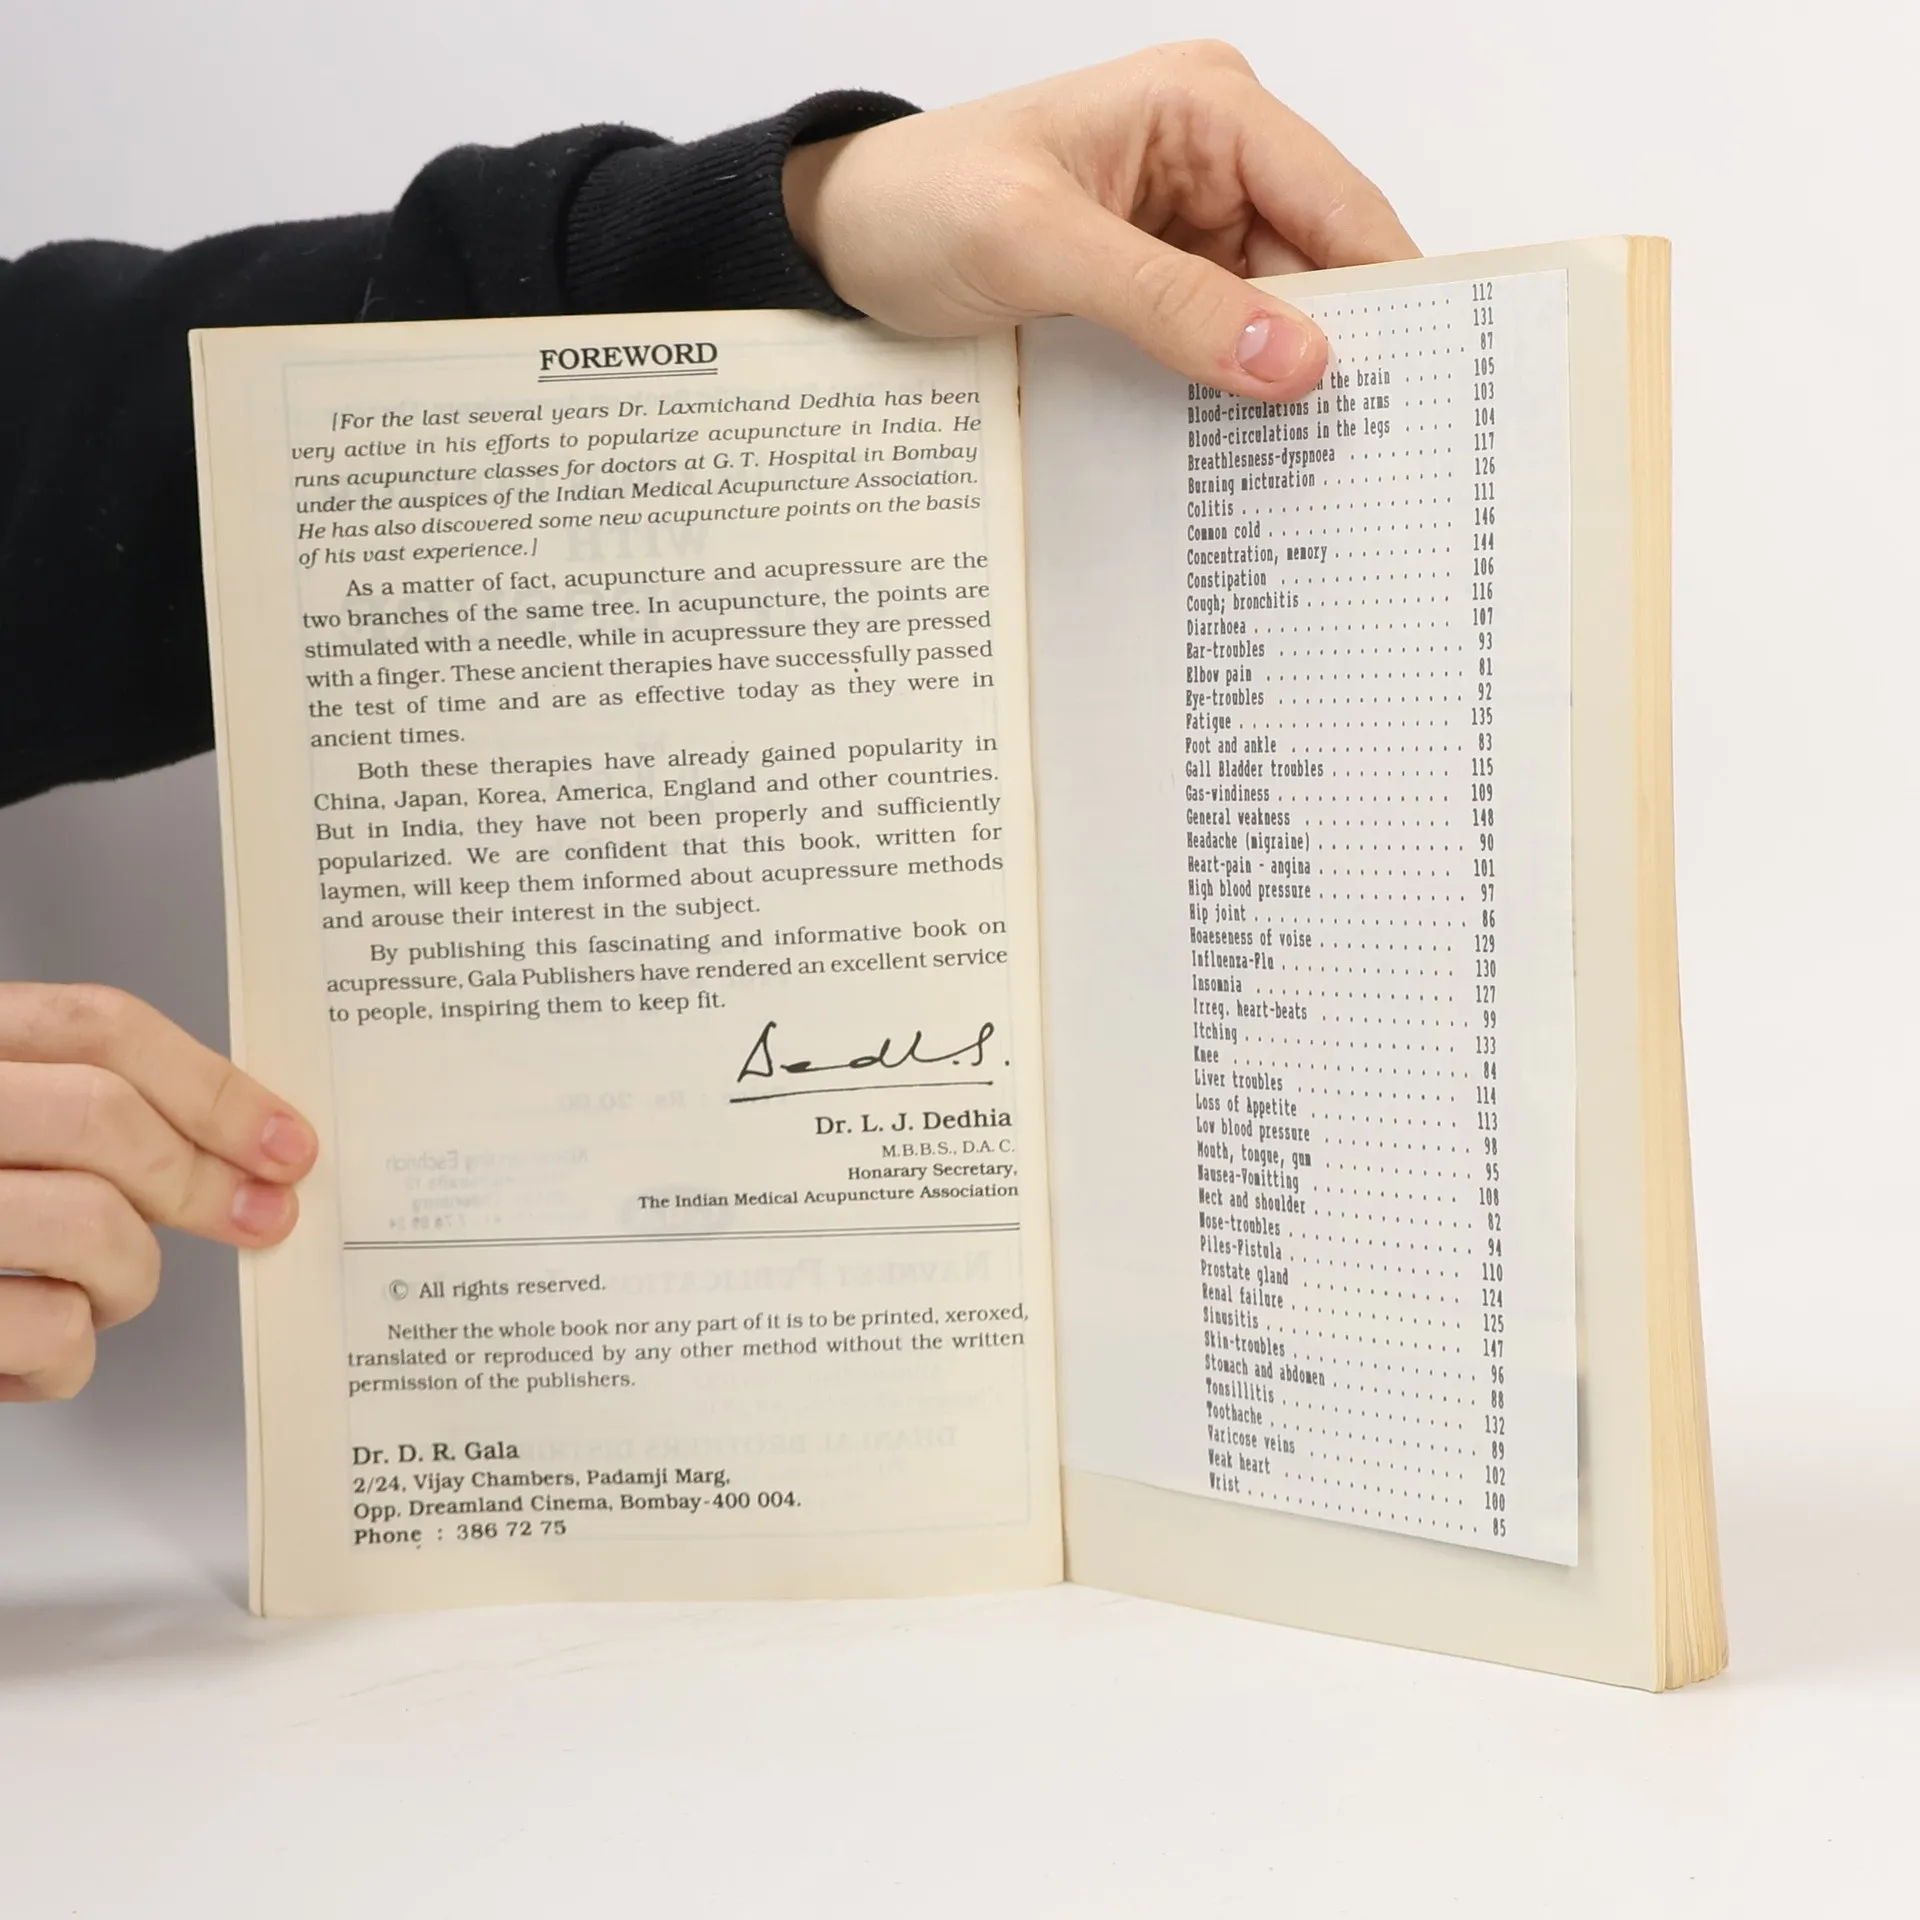 FOREWORD
[For the last several years Dr. Laxmichand Dedhia has been
very active in his efforts to popularize acupuncture in India. He
runs acupuncture classes for doctors at G. T. Hospital in Bombay
under the auspices of the Indian Medical Acupuncture Association.
He has also discovered some new acupuncture points on the basis
of his vast experience.]
As a matter of fact, acupuncture and acupressure are the
two branches of the same tree. In acupuncture, the points are
stimulated with a needle, while in acupressure they are pressed
with a finger. These ancient therapies have successfully passed
the test of time and are as effective today as they were in
ancient times.
Both these therapies have already gained popularity in
China, Japan, Korea, America, England and other countries.
But in India, they have not been properly and sufficiently
popularized. We are confident that this book, written for
laymen, will keep them informed about acupressure methods
and arouse their interest in the subject.
By publishing this fascinating and informative book on
acupressure, Gala Publishers have rendered an excellent service
to people, inspiring them to keep fit.
Dr. L. J. Dedhia
M.B.B.S., D.A.C.
Honarary Secretary,
The Indian Medical Acupuncture Association
© All rights reserved.
Neither the whole book nor any part of it is to be printed, xeroxed,
translated or reproduced by any other method without the written
permission of the publishers.
Dr. D. R. Gala
2/24, Vijay Chambers, Padamji Marg,
Opp. Dreamland Cinema, Bombay-400 004.
Phone : 386 72 75
. . . . . . 112
. . . . . . 131
. . . . . . 87
Blood the brain . . . . 105
Blood-circulations in the arms . . . . 103
Blood-circulations in the legs . . . . 104
Breathlesness-dyspnoea . . . . . . . . 117
Burning micturation . . . . . . . . . . 126
Colitis . . . . . . . . . . . . . . . . 111
Common cold . . . . . . . . . . . . . . 146
Concentration, memory . . . . . . . . . 144
Constipation . . . . . . . . . . . . . 106
Cough; bronchitis . . . . . . . . . . . 116
Diarrhoea . . . . . . . . . . . . . . . 107
Ear-troubles . . . . . . . . . . . . . 93
Elbow pain . . . . . . . . . . . . . . 81
Eye-troubles . . . . . . . . . . . . . 92
Fatigue . . . . . . . . . . . . . . . . 135
Foot and ankle . . . . . . . . . . . . 83
Gall Bladder troubles . . . . . . . . . 115
Gas-windiness . . . . . . . . . . . . . 109
General weakness . . . . . . . . . . . 148
Headache (migraine) . . . . . . . . . . 90
Heart-pain - angina . . . . . . . . . . 101
High blood pressure . . . . . . . . . . 97
Hip joint . . . . . . . . . . . . . . . 86
Hoaeseness of voise . . . . . . . . . . 129
Influenza-Flu . . . . . . . . . . . . . 130
Insomnia . . . . . . . . . . . . . . . 127
Irreg. heart-beats . . . . . . . . . . 99
Itching . . . . . . . . . . . . . . . . 133
Knee . . . . . . . . . . . . . . . . . 84
Liver troubles . . . . . . . . . . . . 114
Loss of Appetite . . . . . . . . . . . 113
Low blood pressure . . . . . . . . . . 98
Mouth, tongue, gum . . . . . . . . . . 95
Nausea-Vomitting . . . . . . . . . . . 108
Neck and shoulder . . . . . . . . . . . 82
Nose-troubles . . . . . . . . . . . . . 94
Piles-Fistula . . . . . . . . . . . . . 110
Prostate gland . . . . . . . . . . . . 124
Renal failure . . . . . . . . . . . . . 125
Sinusitis . . . . . . . . . . . . . . . 147
Skin-troubles . . . . . . . . . . . . . 96
Stomach and abdomen . . . . . . . . . . 88
Tonsillitis . . . . . . . . . . . . . . 132
Toothache . . . . . . . . . . . . . . . 89
Varicose veins . . . . . . . . . . . . 102
Weak heart . . . . . . . . . . . . . . 100
Wrist . . . . . . . . . . . . . . . . . 85